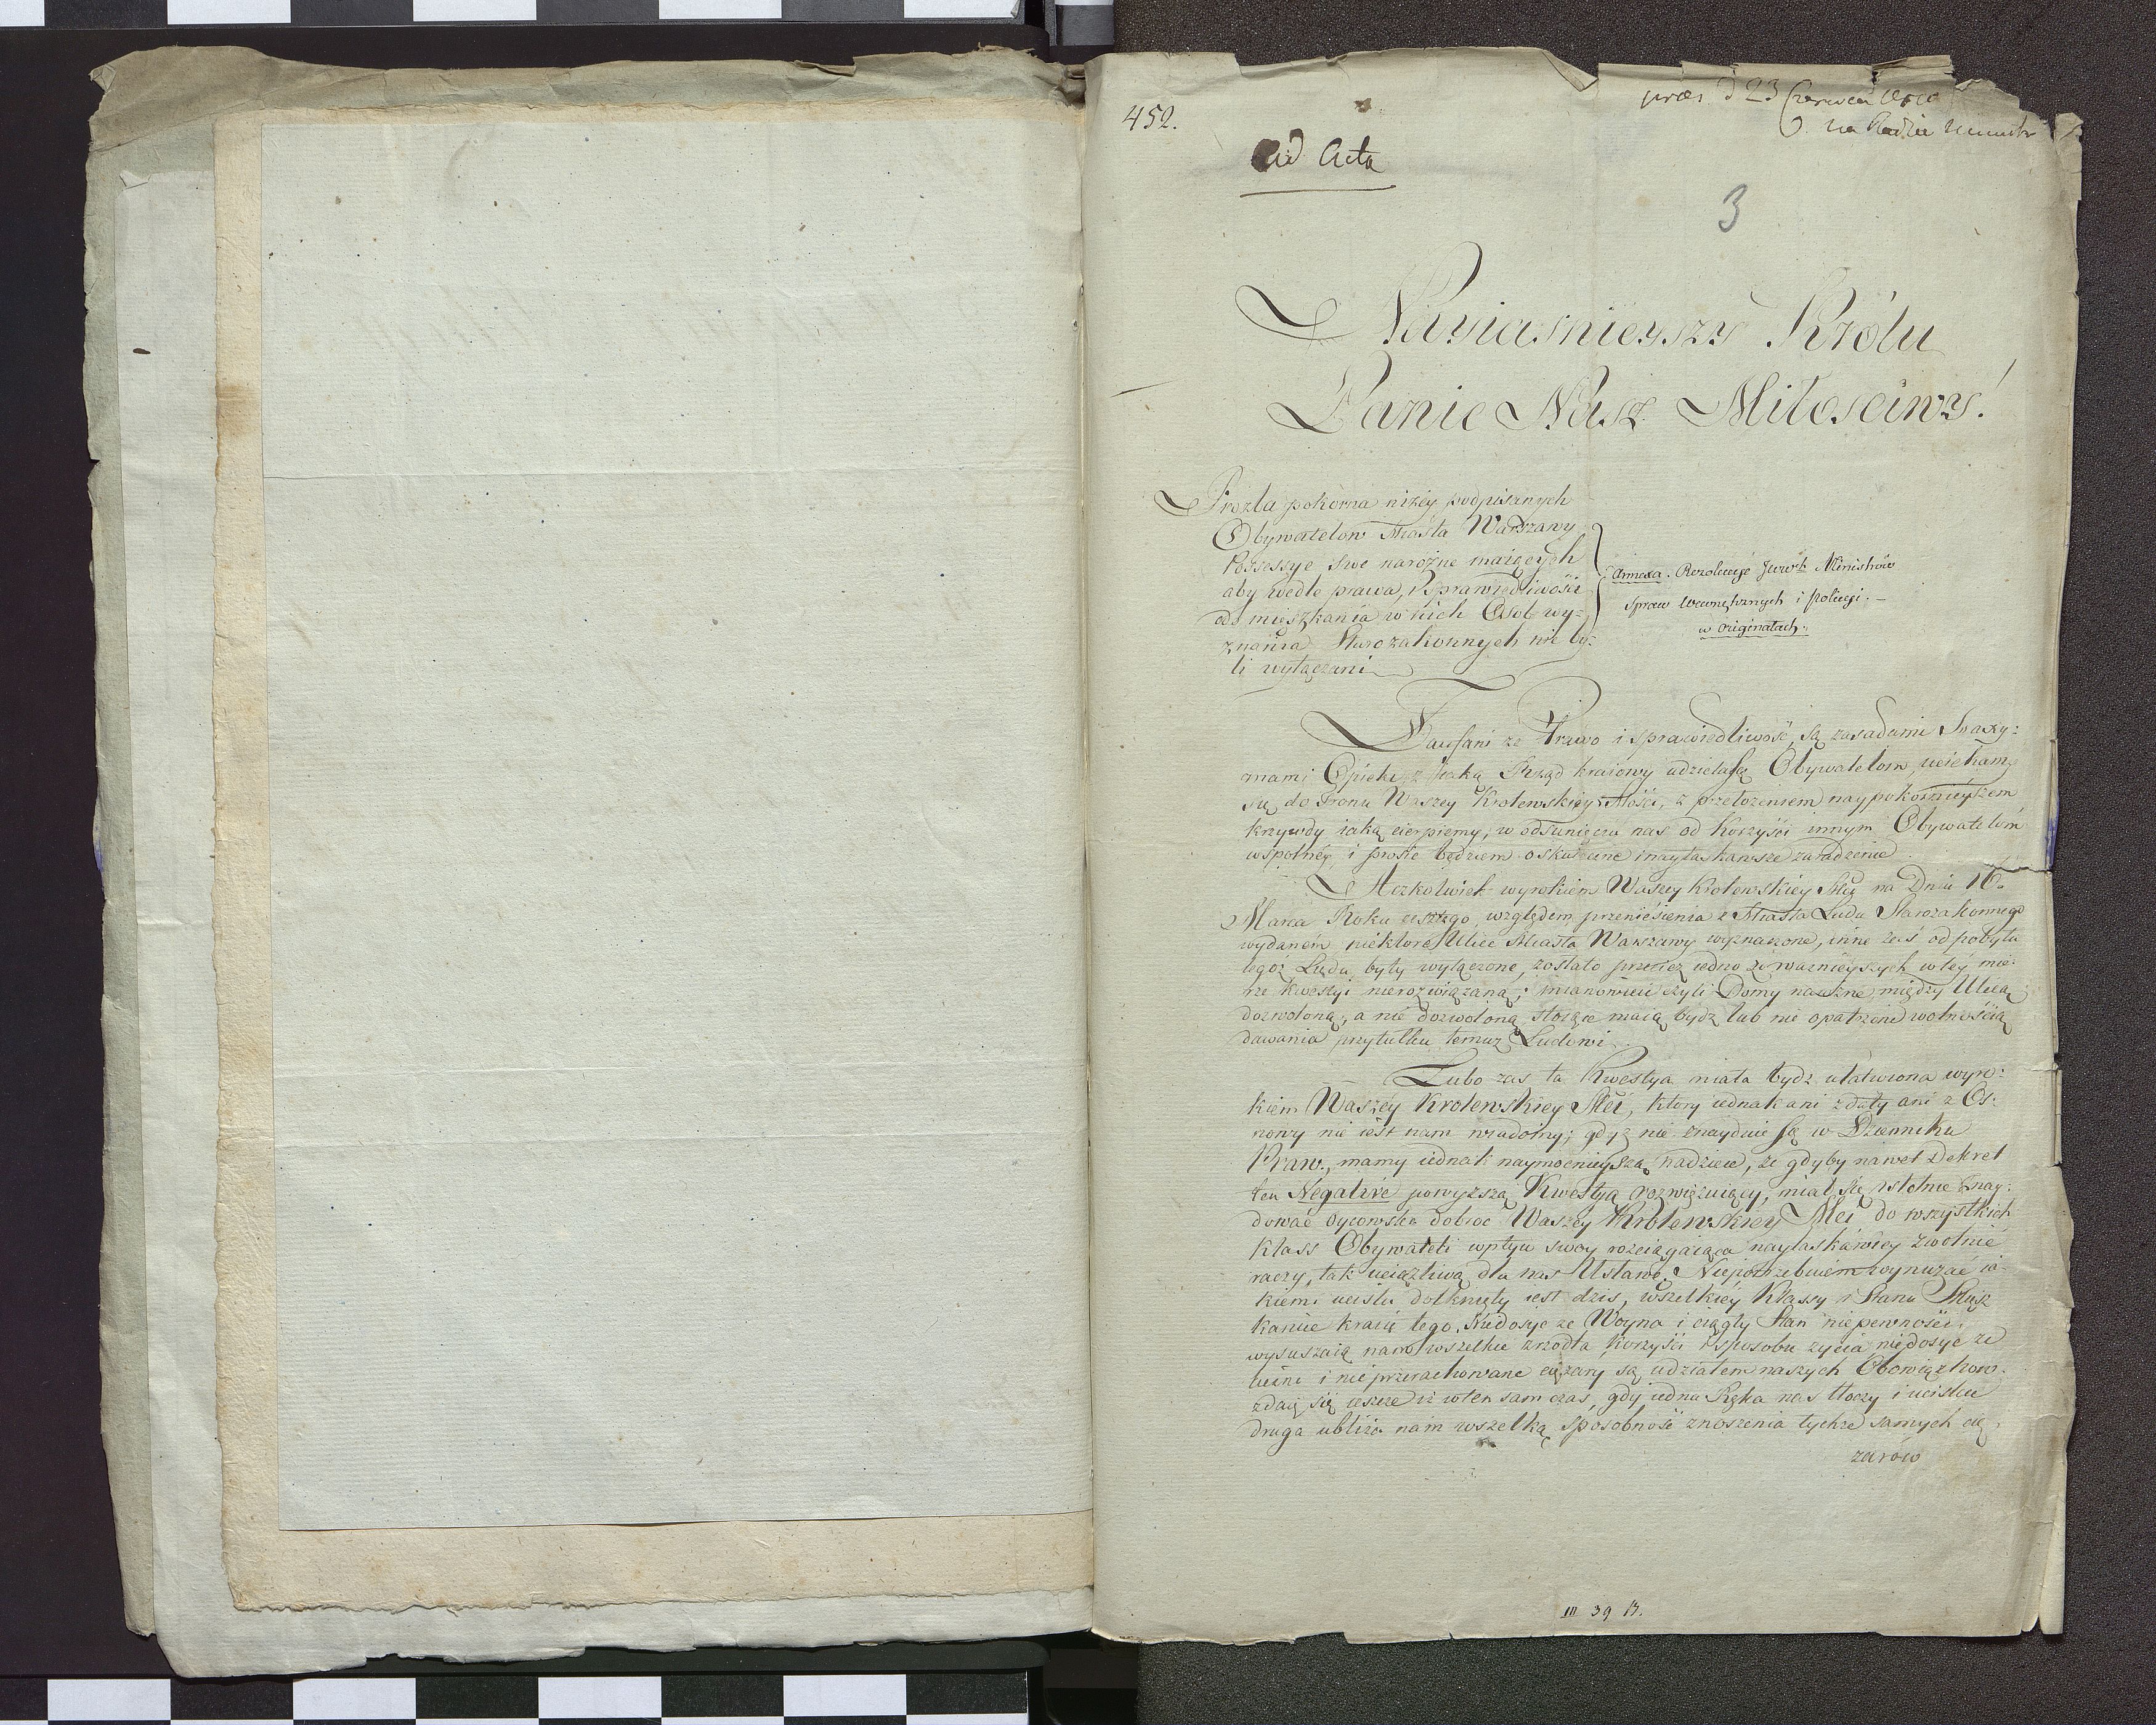 452.
præs d 23 Czerwca 1810
na Radzie Ministr
ad Acta
3
Nayiasnieyszy Królu
Panie Nasz Miłosciwy!
Prozba pokorna niżey podpisanych
Obywatelow Miasta Warszawy
Possessye swe narożne maiących
aby wedle prawa, i sprawiedliwości
od mieszkania w nich Osob wy-
znania Starozakonnych nie by-
li wyłączeni
Annexa. Rezolucye JWWch Ministrów
Spraw Wewnętrznych i Policyi.—
w originałach.
Ufani że Prawo i sprawiedliwość, są zasadami
mami Opieki, z iaką Rząd kraiowy udziela się Obywatelom, uciekamy
się do Tronu Waszey Krolewskiey Mości, z przełożeniem naypokornieyszem
krzywdy iaką cierpiemy, w odsunięciu nas od Korzyści innym Obywatelom
wspolney i prosić będziem o skuteczne i nayłaskawsze zaradzenie.
Aczkolwiek wyrokiem Waszey Krolewskiey Mci na Dniu 16o
Marca Roku zeszłego, względem przeniesienia z Miasta Ludu Starozakonnego
wydanem niektore Ulice Miasta Warszawy wyznaczone, inne zaś od pobytu
tegoż Ludu były wyłączone, zostało przecież iedno z ważnieyszych w tey mie-
rze kwestyi nierozwiązaną; mianowicie czyli Domy narożne między Ulicą
dozwoloną, a nie dozwoloną stoiące maią bydz lub nie opatrzone wolnością
dawania przytułku temuż Ludowi.
Lubo zas ta Kwestya miała bydz ułatwiona wyro-
kiem Waszey Krolewskiey Mci, ktory iednak ani z daty ani z Os-
nowy nie iest nam wiadomy; gdyż nie znayduie się w Dzienniku
Praw., mamy iednak naymocnieyszą nadzieie, że gdyby nawet Dekret
ten Negative powyższą Kwestyą rozwięzuiący, miał się istotnie znay-
dować oycowska dobroć Waszey Krolewskiey Mci do wszystkich
Klass Obywateli wpływ swoy rozciągaiąca nayłaskawiey zwolnić
raczy, tak uciążliwą dla nas Ustawę. Niepotrzebuiem wynurzać ia-
kiemi uciski dotknięty iest dzis, wszelkiey Klassy i Stanu Miesz
kaniec kraiu tego. Niedosyć że Woyna i ciągły Stan niepewności,
wysuszaią nam wszelkie zrzodła korzyści i sposobu życia niedosyć że
liczne i nieprzerachowane ciężary są udziałem naszych Obowiązkow.
zdaie się ieszcze iż w ten sam czas, gdy iedna Ręka nas tłoczy i uciska
druga ubliża nam wszelką sposobność znoszenia tychże samych cię
żarów
III 39 B.